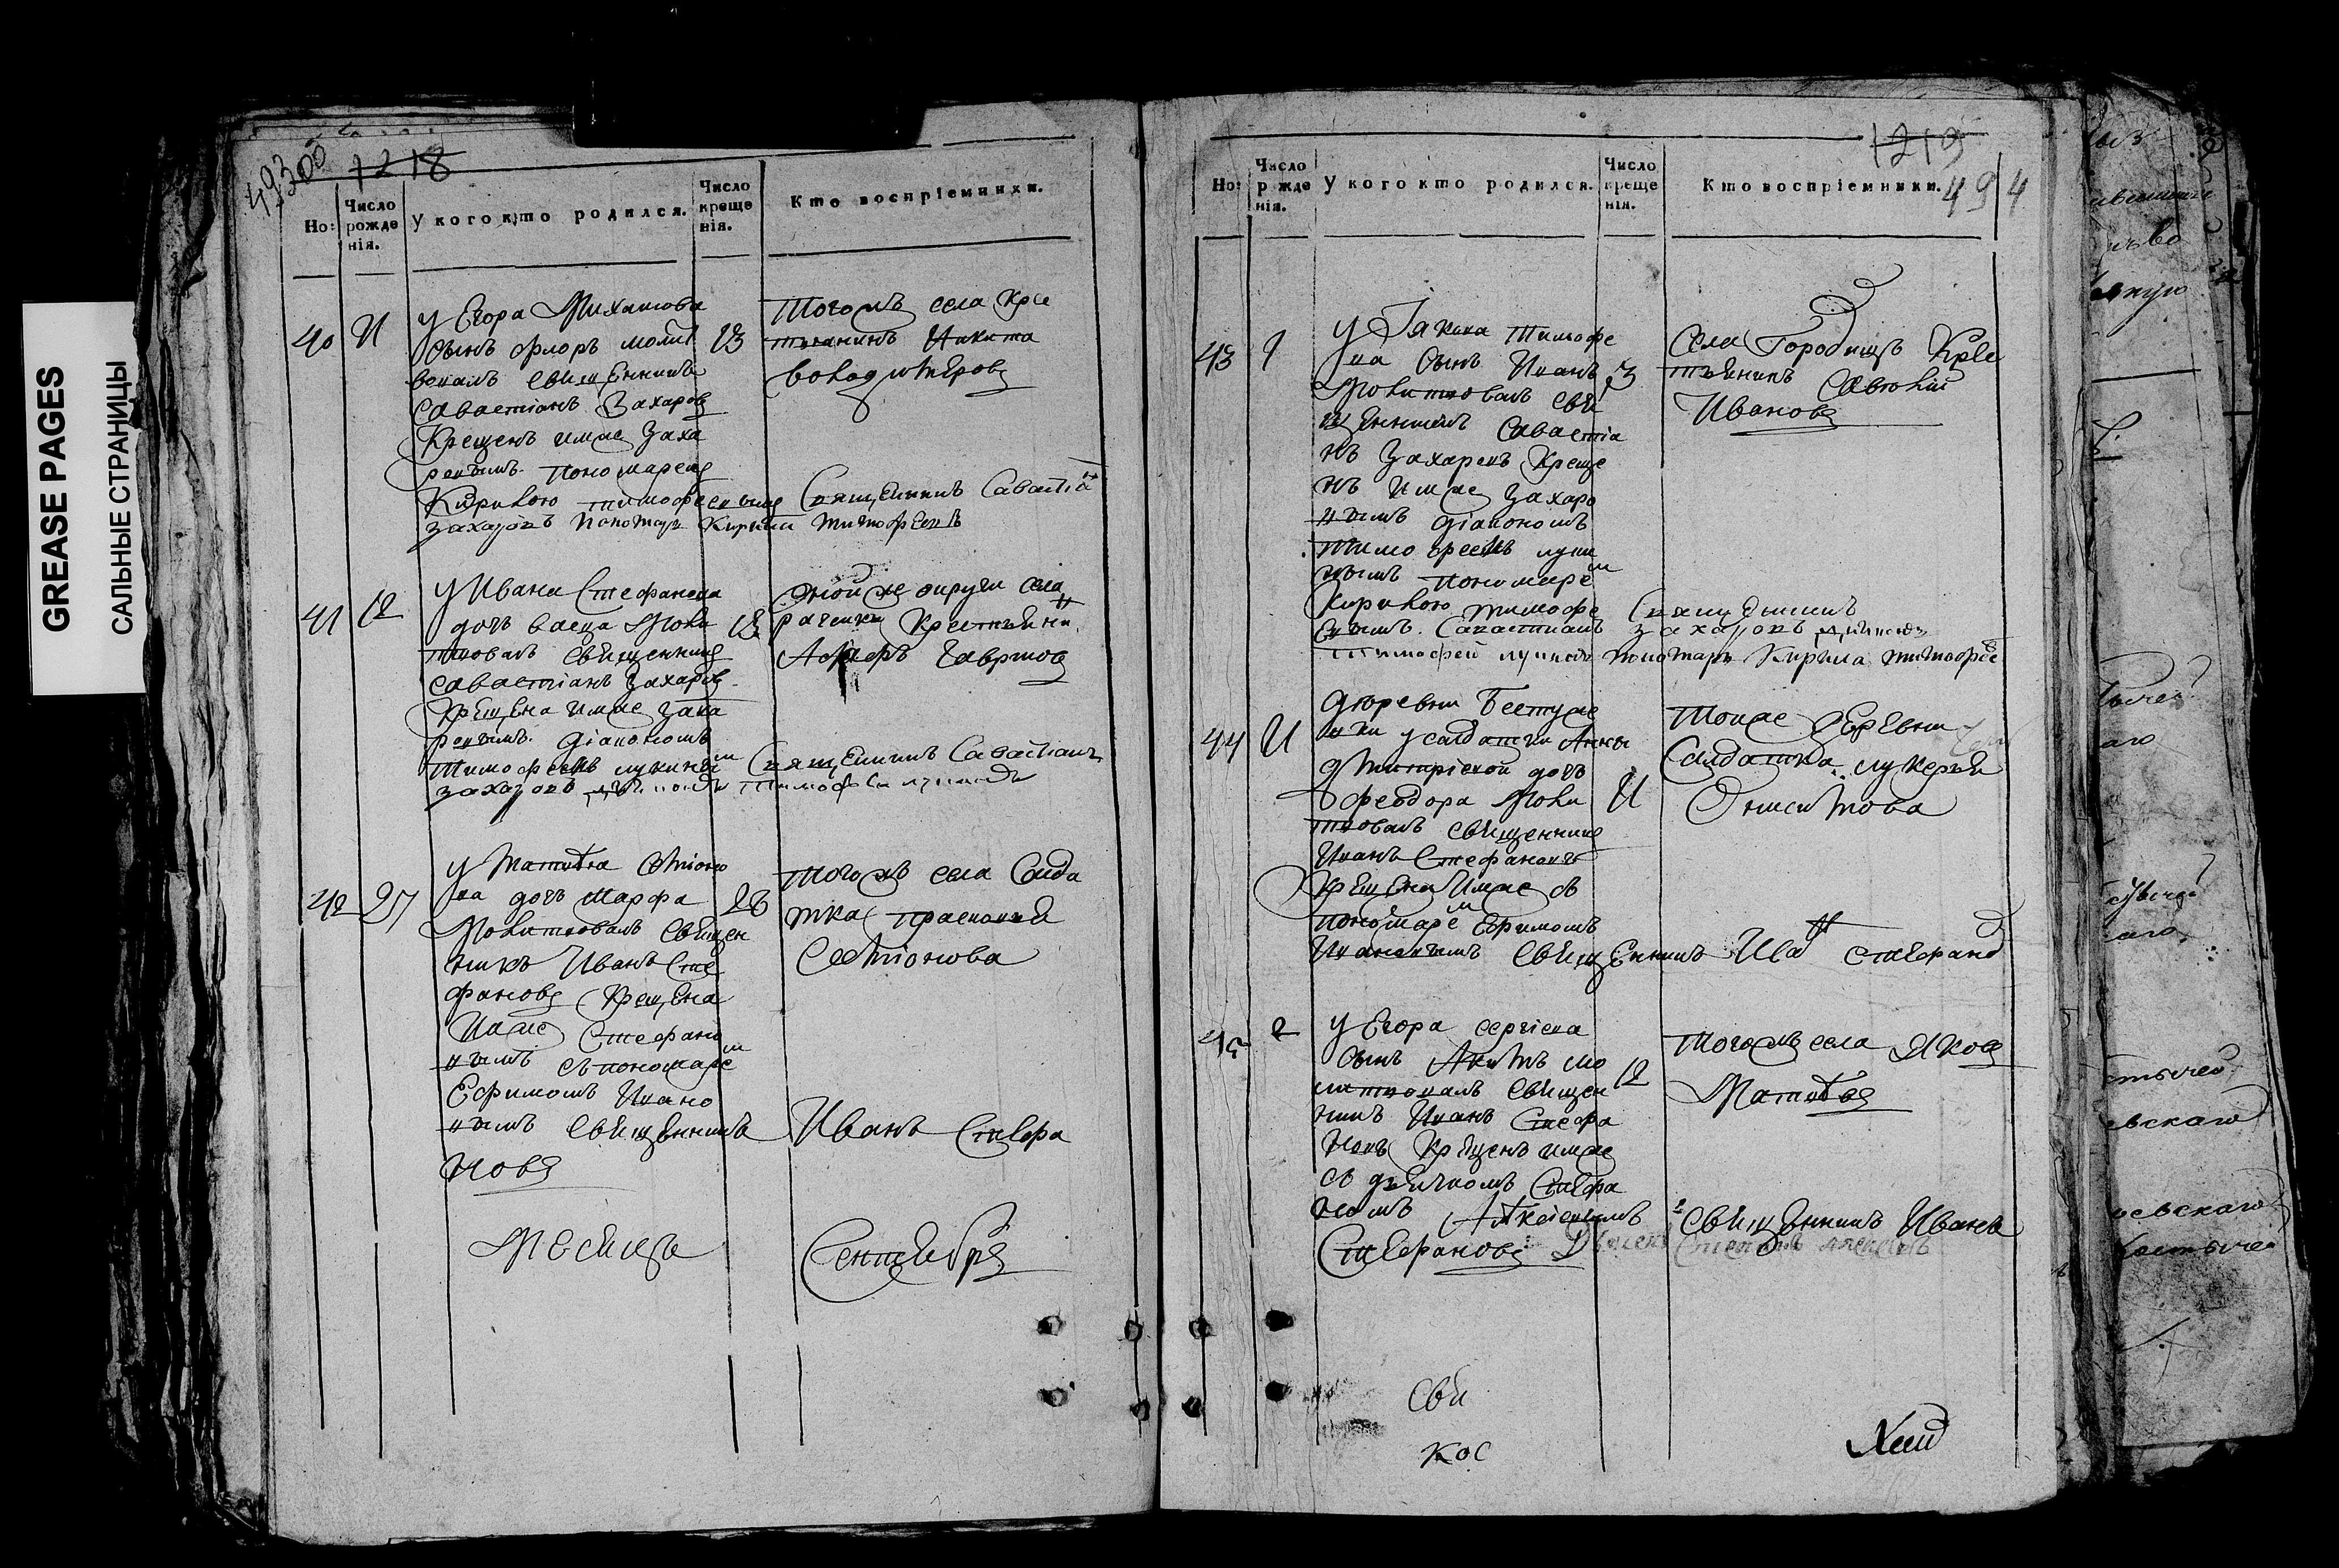 GREASE PAGES
САЛЬНЫЕ СТРАНИЦЫ
1218
Но:
Число рожденія.
У кого кто родился.
Число крещенія.
Кто воспріемники.
40
у Егора Михаилова
сынъ Флоръ молит
вовалъ священникъ
Савастіанъ Захаровъ
Крещенъ имже Заха
ровымъ пономаремъ
Кирилою Тимофеевымъ Священникъ Савастіанъ
Захаровъ Пономарь Кирила Тимофеевъ
13
Того жъ села Кре
стьянинъ Никита
41
12
у Ивана Стефанова
дочь Васса Моли
твовалъ священникъ
Савастіанъ Захаровъ
Крещена имже Заха
ровымъ діакономъ
Тимофеемъ Лукинымъ Священникъ Савастіанъ
Захаровъ діаконъ Тимофей Лукинъ
13
оной же округи села
Крестьянинъ
Гавриловъ
42
27
у Матвея Семіоно
ва дочь Марфа
Молитвовалъ священ
никъ Иванъ Сте
фановъ Крещена
Имже Стефано
вымъ съ пономаремъ
Ефимомъ Ивано
вымъ священникъ Иванъ Стефа
новъ
28
Того жъ села Салда
тка
Семіонова
Месяцъ Сентябрь
1219
494
Но:
Число рожденія.
У кого кто родился.
Число крещенія.
Кто воспріемники.
43
1
у Іакова Тимофе
ева сынъ Иванъ
Молитвовалъ свя
щенникъ Савастіа
нъ Захаровъ Креще
нъ имже Захаро
вымъ діакономъ
Тимофеемъ Луки
нымъ пономаремъ
Кирилою Тимофе Священникъ
евымъ Савастианъ Захаровъ діаконъ
Тимофей Лукинъ пономарь Кирила Тимофее
3
Села Городищъ Кре
стьянинъ Савелий
Ивановъ
44
деревни Бестуже
вки у салдатки Анны
Дмитріевой дочь
Феодора Моли
твовалъ священникъ
Иванъ Стефановъ
Крещена имже съ
пономаремъ Ефимомъ
Ивановымъ священникъ Иванъ Стефановъ
Тойже деревни
Салдатка Лукерья
Онисимова
45
2
у Егора Сергіева
сынъ Акимъ мо
литвовалъ священ
никъ Иванъ Стефа
новъ Крещенъ имже
съ дьячкомъ Стефа
номъ Алексіевымъ священникъ Иванъ
Стефановъ Дьячекъ Степанъ Алексеевъ
12
Того жъ села Яковъ
Матвеевъ
Свя
кос